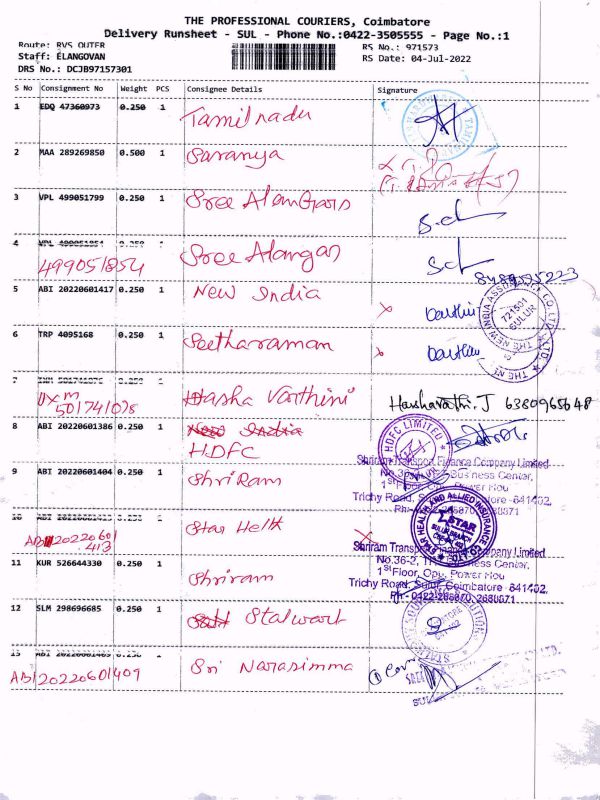 THE PROFESSIONAL COURIERS, Coimbatore
Delivery Runsheet - SUL - Phone No.:0422-3505555 - Page No.:1
Route: RVS OUTER
RS No.: 971573
Staff: ELANGOVAN
RS Date: 04-Jul-2022
DRS No.: DCJB97157301
S No Consignment No Weight PCS Consignee Details Signature
1 EDQ 47360973 0.250 1 Tamilnadu
2 MAA 289269850 0.500 1 Saranya
3 VPL 499051799 0.250 1 Sree Alangars
4 VPL 499051854 0.250 1 Sree Alangar
499051854
5 ABI 20220601417 0.250 1 New India
6 TRP 4095168 0.250 1 Seetharaman
7 0.250 1 Hasha Varthini Harshavathi.J 6380965648
UXM
501741078
8 ABI 20220601386 0.250 1 New India
HDFC
HDFC LIMITED
9 ABI 20220601404 0.250 1 ShriRam
Shriram Transport Finance Company Limited
Business Center,
1st Floor, Opp. Power Hou
Trichy Road, Sulur, Coimbatore - 641402.
10 Star Helth
ABI20220601
413
STAR HEALTH AND ALLIED INSURANCE
STAR
SULUR BRANCH
11 KUR 526644330 0.250 1 Shriram
Shriram Transport Finance Company Limited
No.36-2, Business Center,
1st Floor, Opp. Power Hou
Trichy Road, Sulur, Coimbatore - 641402.
Ph:- 0422-2680870, 2680871
12 SLM 298696685 0.250 1 Stalwart
13 ABI 20220601409 0.250 1 Sri Narasimma
ABI20220601409
THE NEW INDIA ASSURANCE CO. LTD.
721501
SULUR